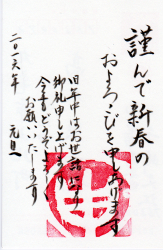 謹んで新春の
およろこびを申しあげます
旧年中はお世話になり
御礼申し上げます
今年もどうぞ
お願いいたします
二〇十六年
元旦